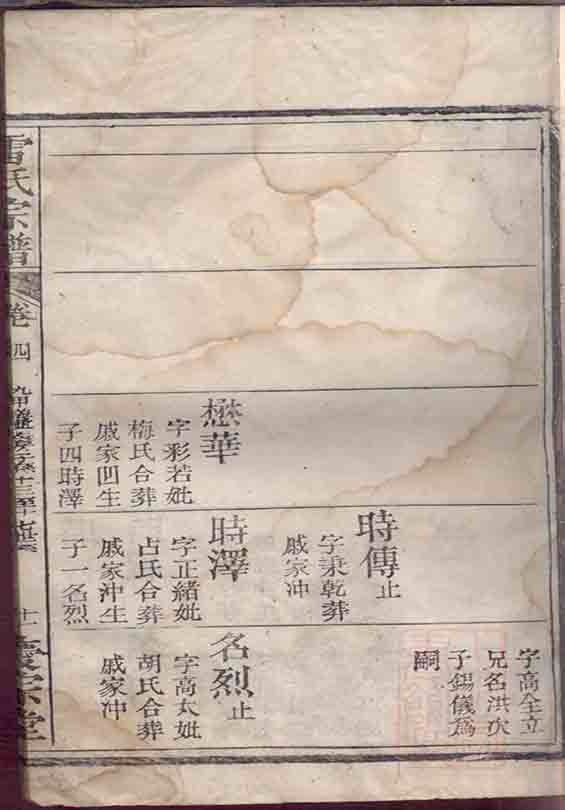 字高全立
兄名洪次
子錫儀為
嗣
時傳止
字秉乾葬
戚家沖
懋華
字彩若妣
梅氏合葬
戚家凹生
子四時澤
時澤
字正緒妣
占氏合葬
戚家沖生
子一名烈
名烈止
字高太妣
胡氏合葬
戚家沖
氏宗譜
卷四
十一
宗堂